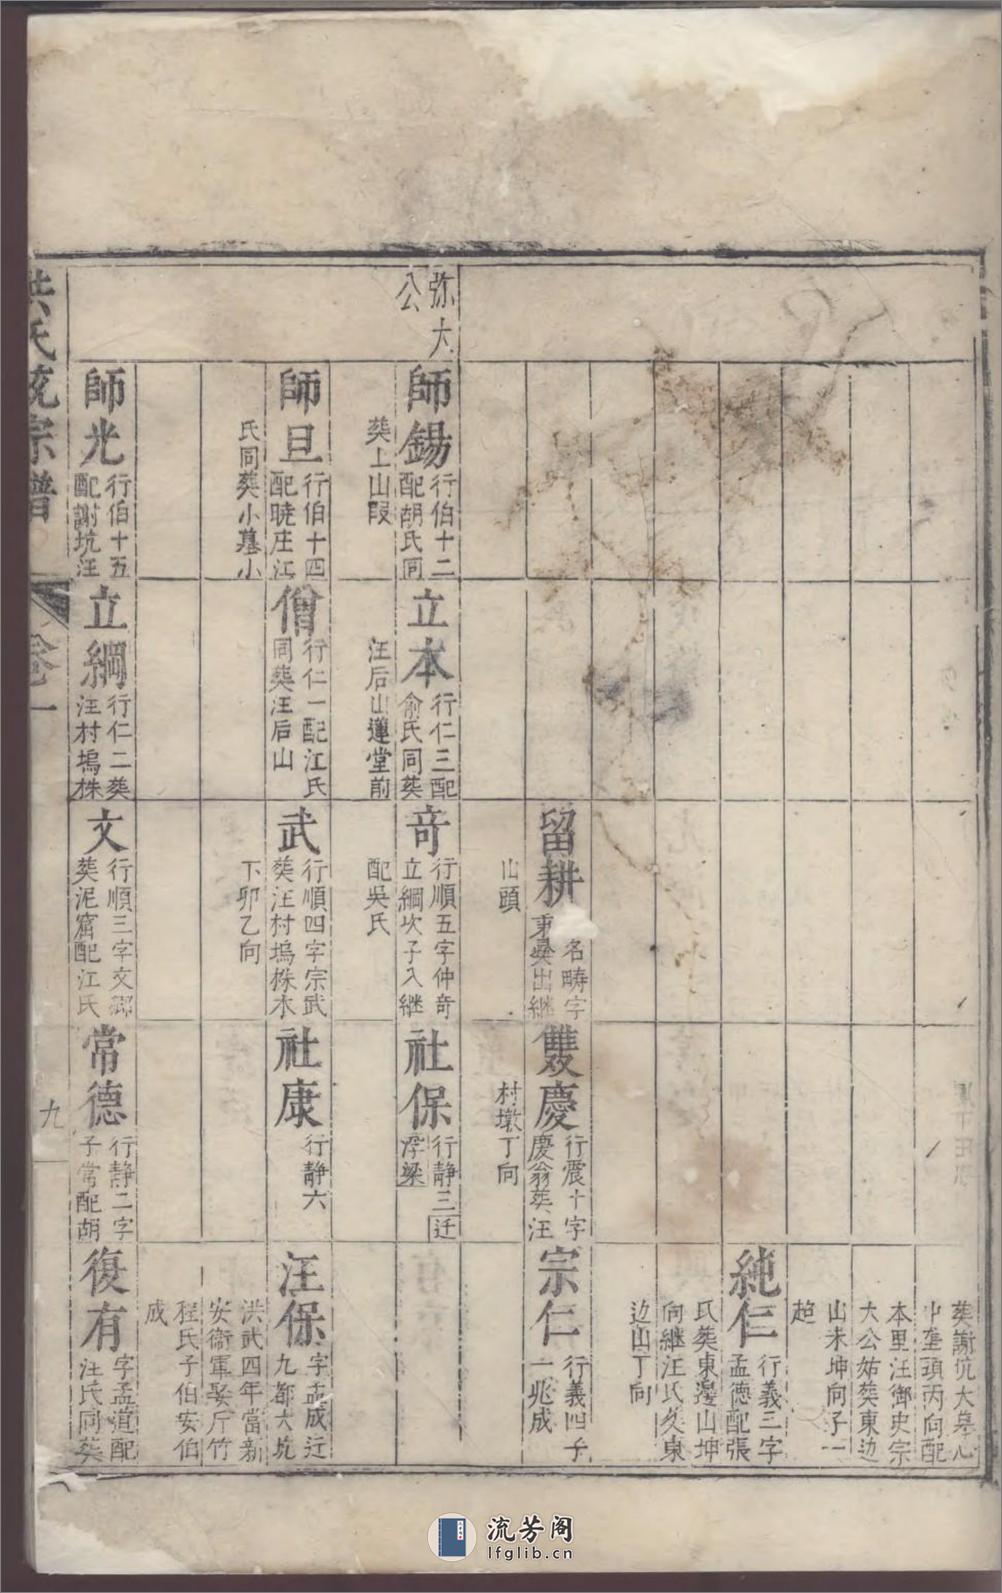 弥大
公
師錫
行伯十二
配胡氏同
葬上山段
師旦
行伯十四
配曉庄江
氏同葬小墓小
師光
行伯十五
配謝坑汪
立本
行仁三配
俞氏同葬
汪后山蓮堂前
僧
行仁一配江氏
同葬汪后山
立綱
行仁二葬
汪村塢株
留耕
名疇字
出継
山頭
奇
行順五字仲奇
立綱次子入継
配吳氏
武
行順四字宗武
葬汪村塢株木
下卯乙向
文
行順三字文郷
葬泥窟配江氏
雙慶
行震十字
慶翁葬汪
村墩丁向
社保
行靜三迁
浮梁
社康
行靜六
常德
行靜二字
子常配胡
葬謝坑大墓心
中壟頭丙向配
本里汪御史宗
大公姑葬東边
山未坤向子一
超
純仁
行義三字
孟德配張
氏葬東邊山坤
向継汪氏久東
边山丁向
宗仁
行義四子
一兆成
汪保
字孟成迁
九都大坑
洪武四年當新
安衞軍娶斤竹
程氏子伯安伯
成
復有
字孟道配
汪氏同葬
洪氏統宗譜
卷一
九
流芳阁
lfglib.cn